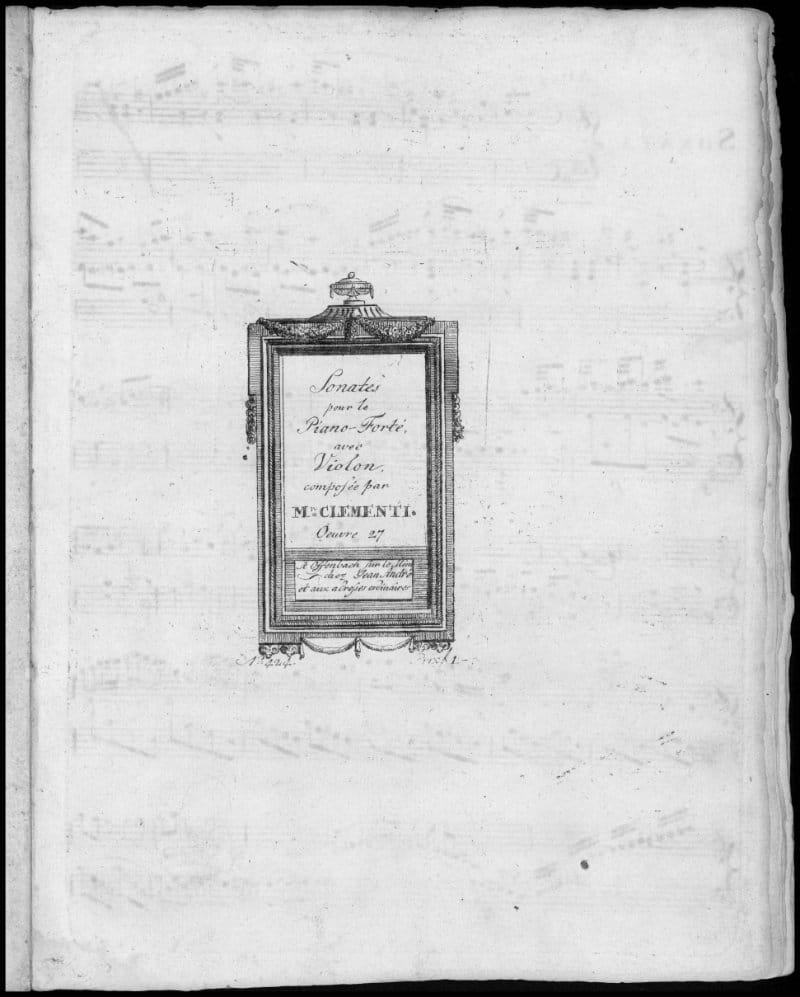 Sonates
pour le
Piano-Forté,
avec
Violon,
composée par
Mr. CLEMENTI.
Oeuvre 27
A Offenbach sur le Mein
chez Jean André
et aux adresses ordinaires
No. 424.
SONATA